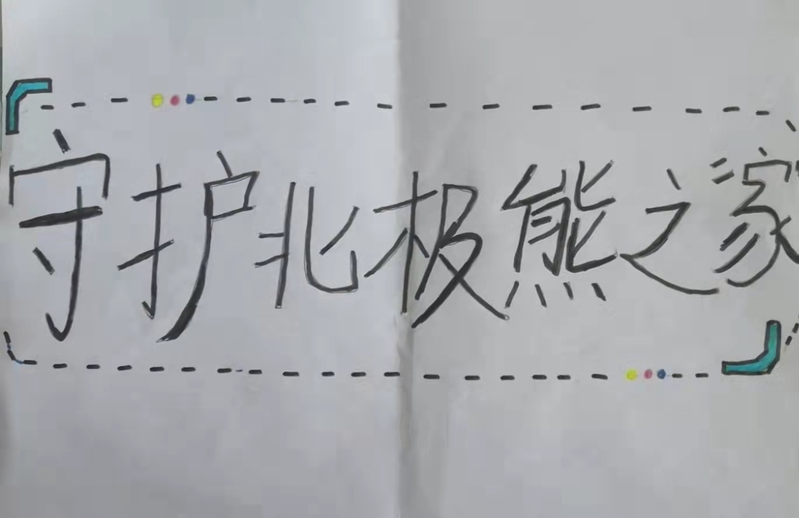 守护北极熊之家